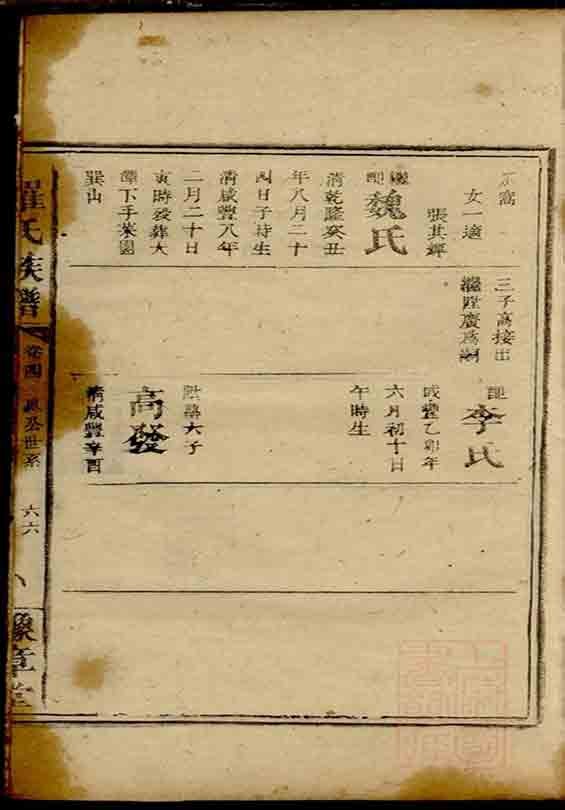 窩
女一適
張其輝
繼配魏氏
清乾隆癸丑
年八月二十
四日子時生
清咸豐八年
二月二十日
寅時歿葬大
潭下手菜園
巽山
三子高接出
繼陞慶為嗣
配李氏
咸豐乙卯年
六月初十日
午時生
陞 六子
高發
清咸豐辛酉
羅氏族譜
卷四
公世系
六六
豫章堂